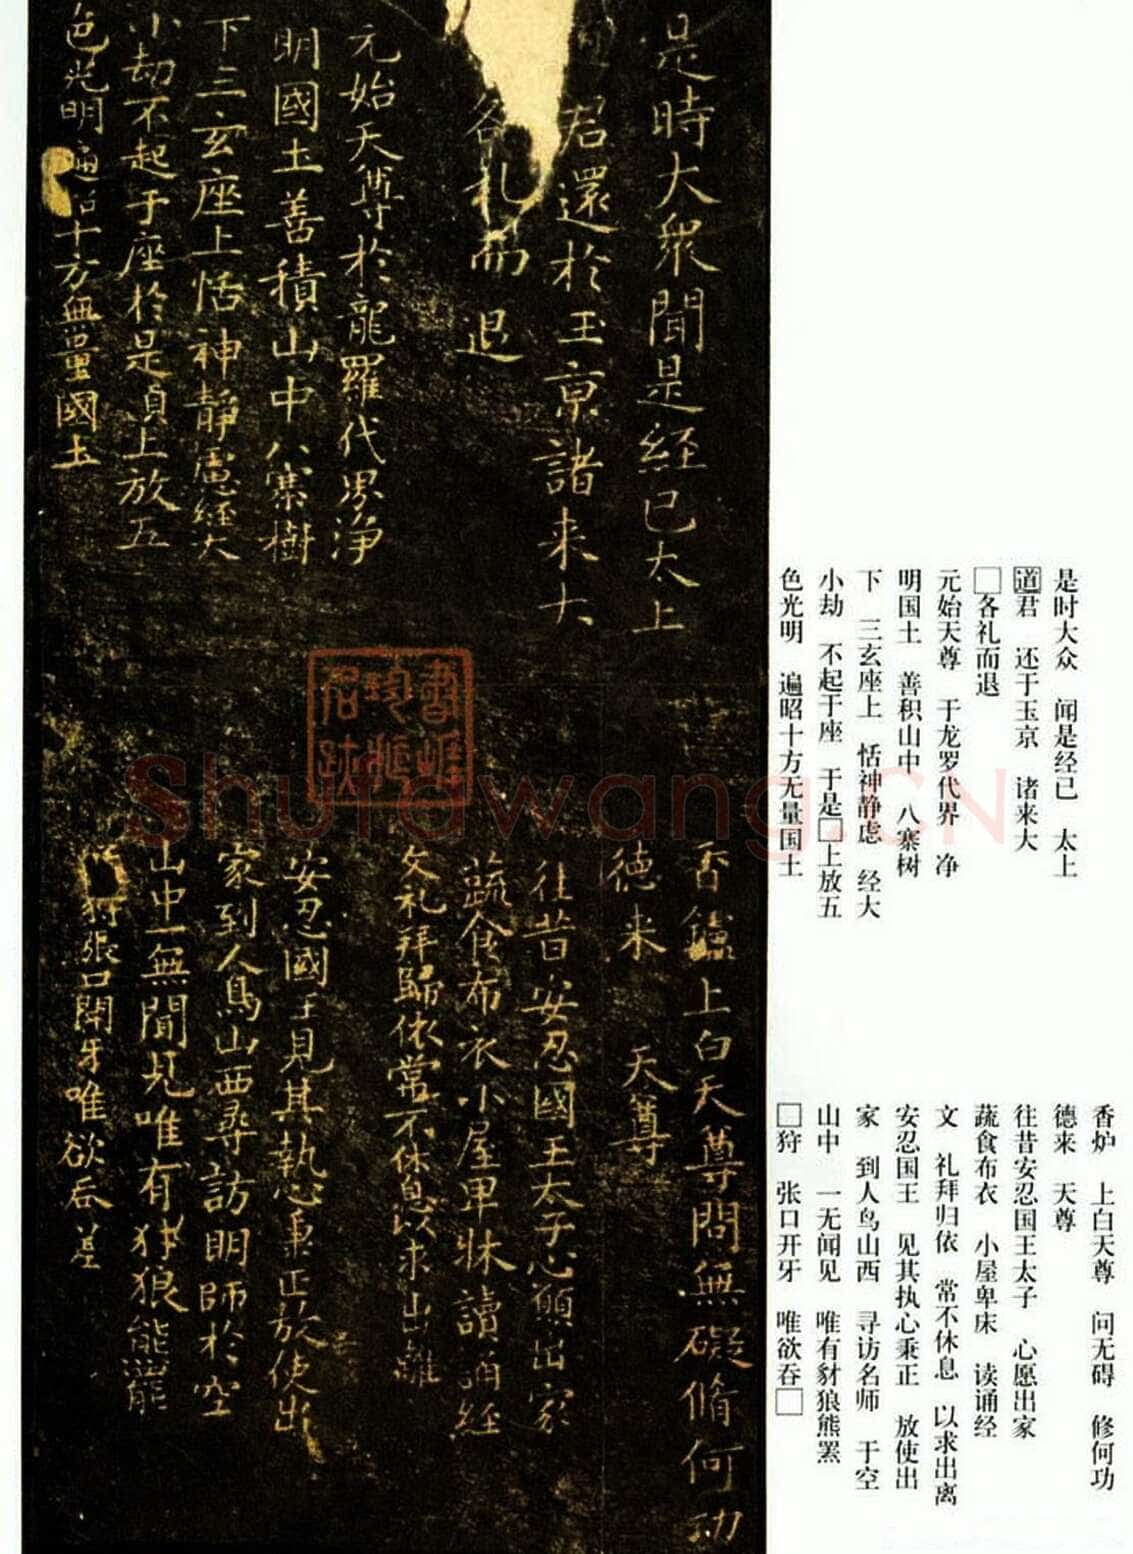 是時大衆聞是經已太上
君還於玉京諸来大
各礼而退
元始天尊於龍羅代界浄
明國土善積山中八寨樹
下三玄座上恬神静慮經大
小劫不起于座於是貞上放五
色光明遍昭十方無量國土
香鑪上白天尊問無礙脩何功
德来 天尊
往昔安忍國王太子心願出家
蔬食布衣小屋卑牀讀誦經
文礼拜歸依常不休息以求出離
安忍國王見其執心秉正放使出
家到人鳥山西尋訪明師於空
山中一無聞見唯有犲狼熊羆
狩張口開牙唯欲吞
是时大众 闻是经已 太上
道君 还于玉京 诸来大
□各礼而退
元始天尊 于龙罗代界 净
明国土 善积山中 八寨树
下 三玄座上 恬神静虑 经大
小劫 不起于座 于是□上放五
色光明 遍昭十方无量国土
香炉 上白天尊 问无碍 修何功
德来 天尊
往昔安忍国王太子 心愿出家
蔬食布衣 小屋卑床 读诵经
文 礼拜归依 常不休息 以求出离
安忍国王 见其执心秉正 放使出
家 到人鸟山西 寻访名师 于空
山中 一无闻见 唯有豺狼熊罴
□狩 张口开牙 唯欲吞□
Shufawang.CN